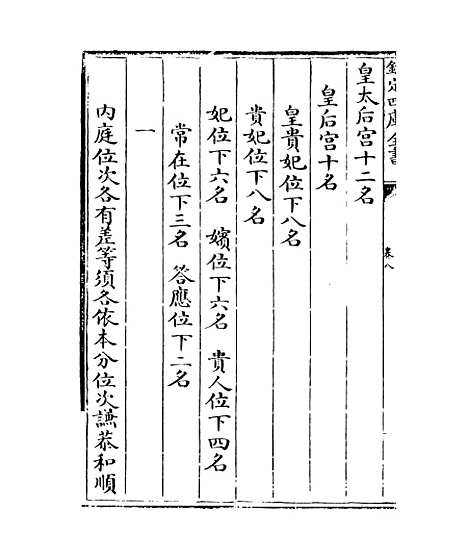 欽定四庫全書
卷八
皇太后宫十二名
皇后宫十名
皇貴妃位下八名
貴妃位下八名
妃位下六名　嬪位下六名　貴人位下四名
常在位下三名　答應位下二名
一
内庭位次各有差等須各依本分位次謙恭和順